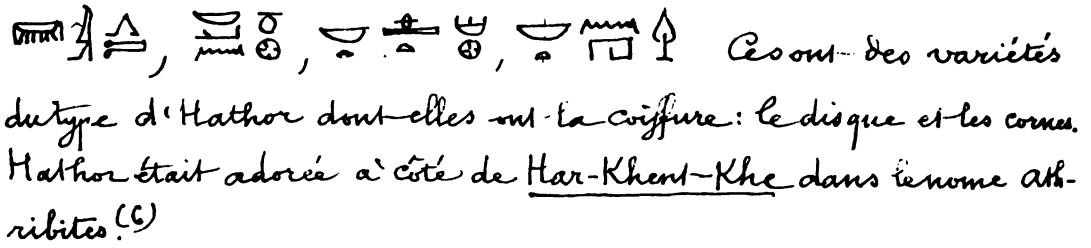 , , , Ce sont des variétés
du type d'Hathor dont elles ont la coiffure : le disque et les cornes.
Hathor était adorée à côté de Har-Khent-Khe dans le nome ath-
ribites. (6)